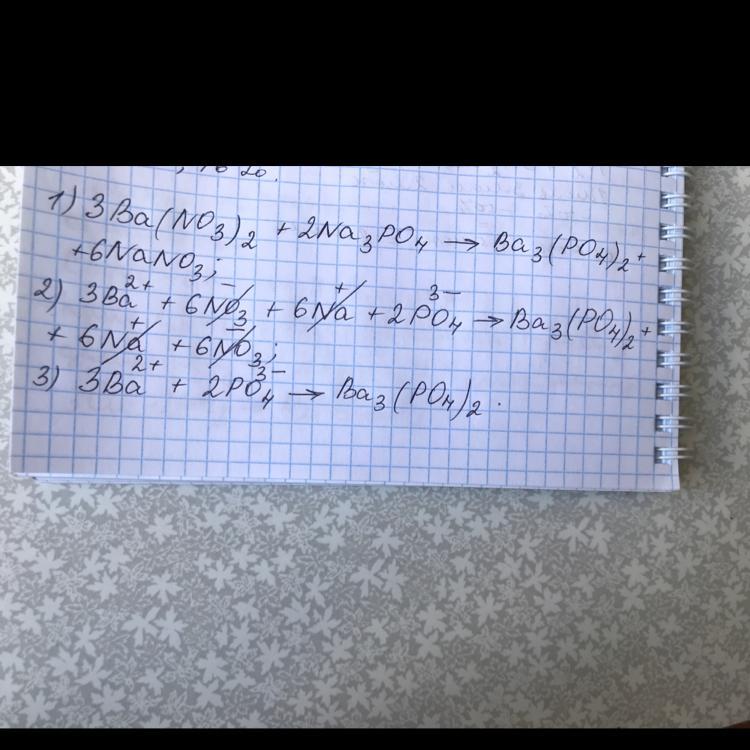 1) 3Ba(NO₃)₂ + 2Na₃PO₄ → Ba₃(PO₄)₂ +
+6NaNO₃;
2) 3Ba²⁺ + 6NO₃⁻ + 6Na⁺ + 2PO₄³⁻ → Ba₃(PO₄)₂ +
+ 6Na⁺ + 6NO₃⁻;
3) 3Ba²⁺ + 2PO₄³⁻ → Ba₃(PO₄)₂.